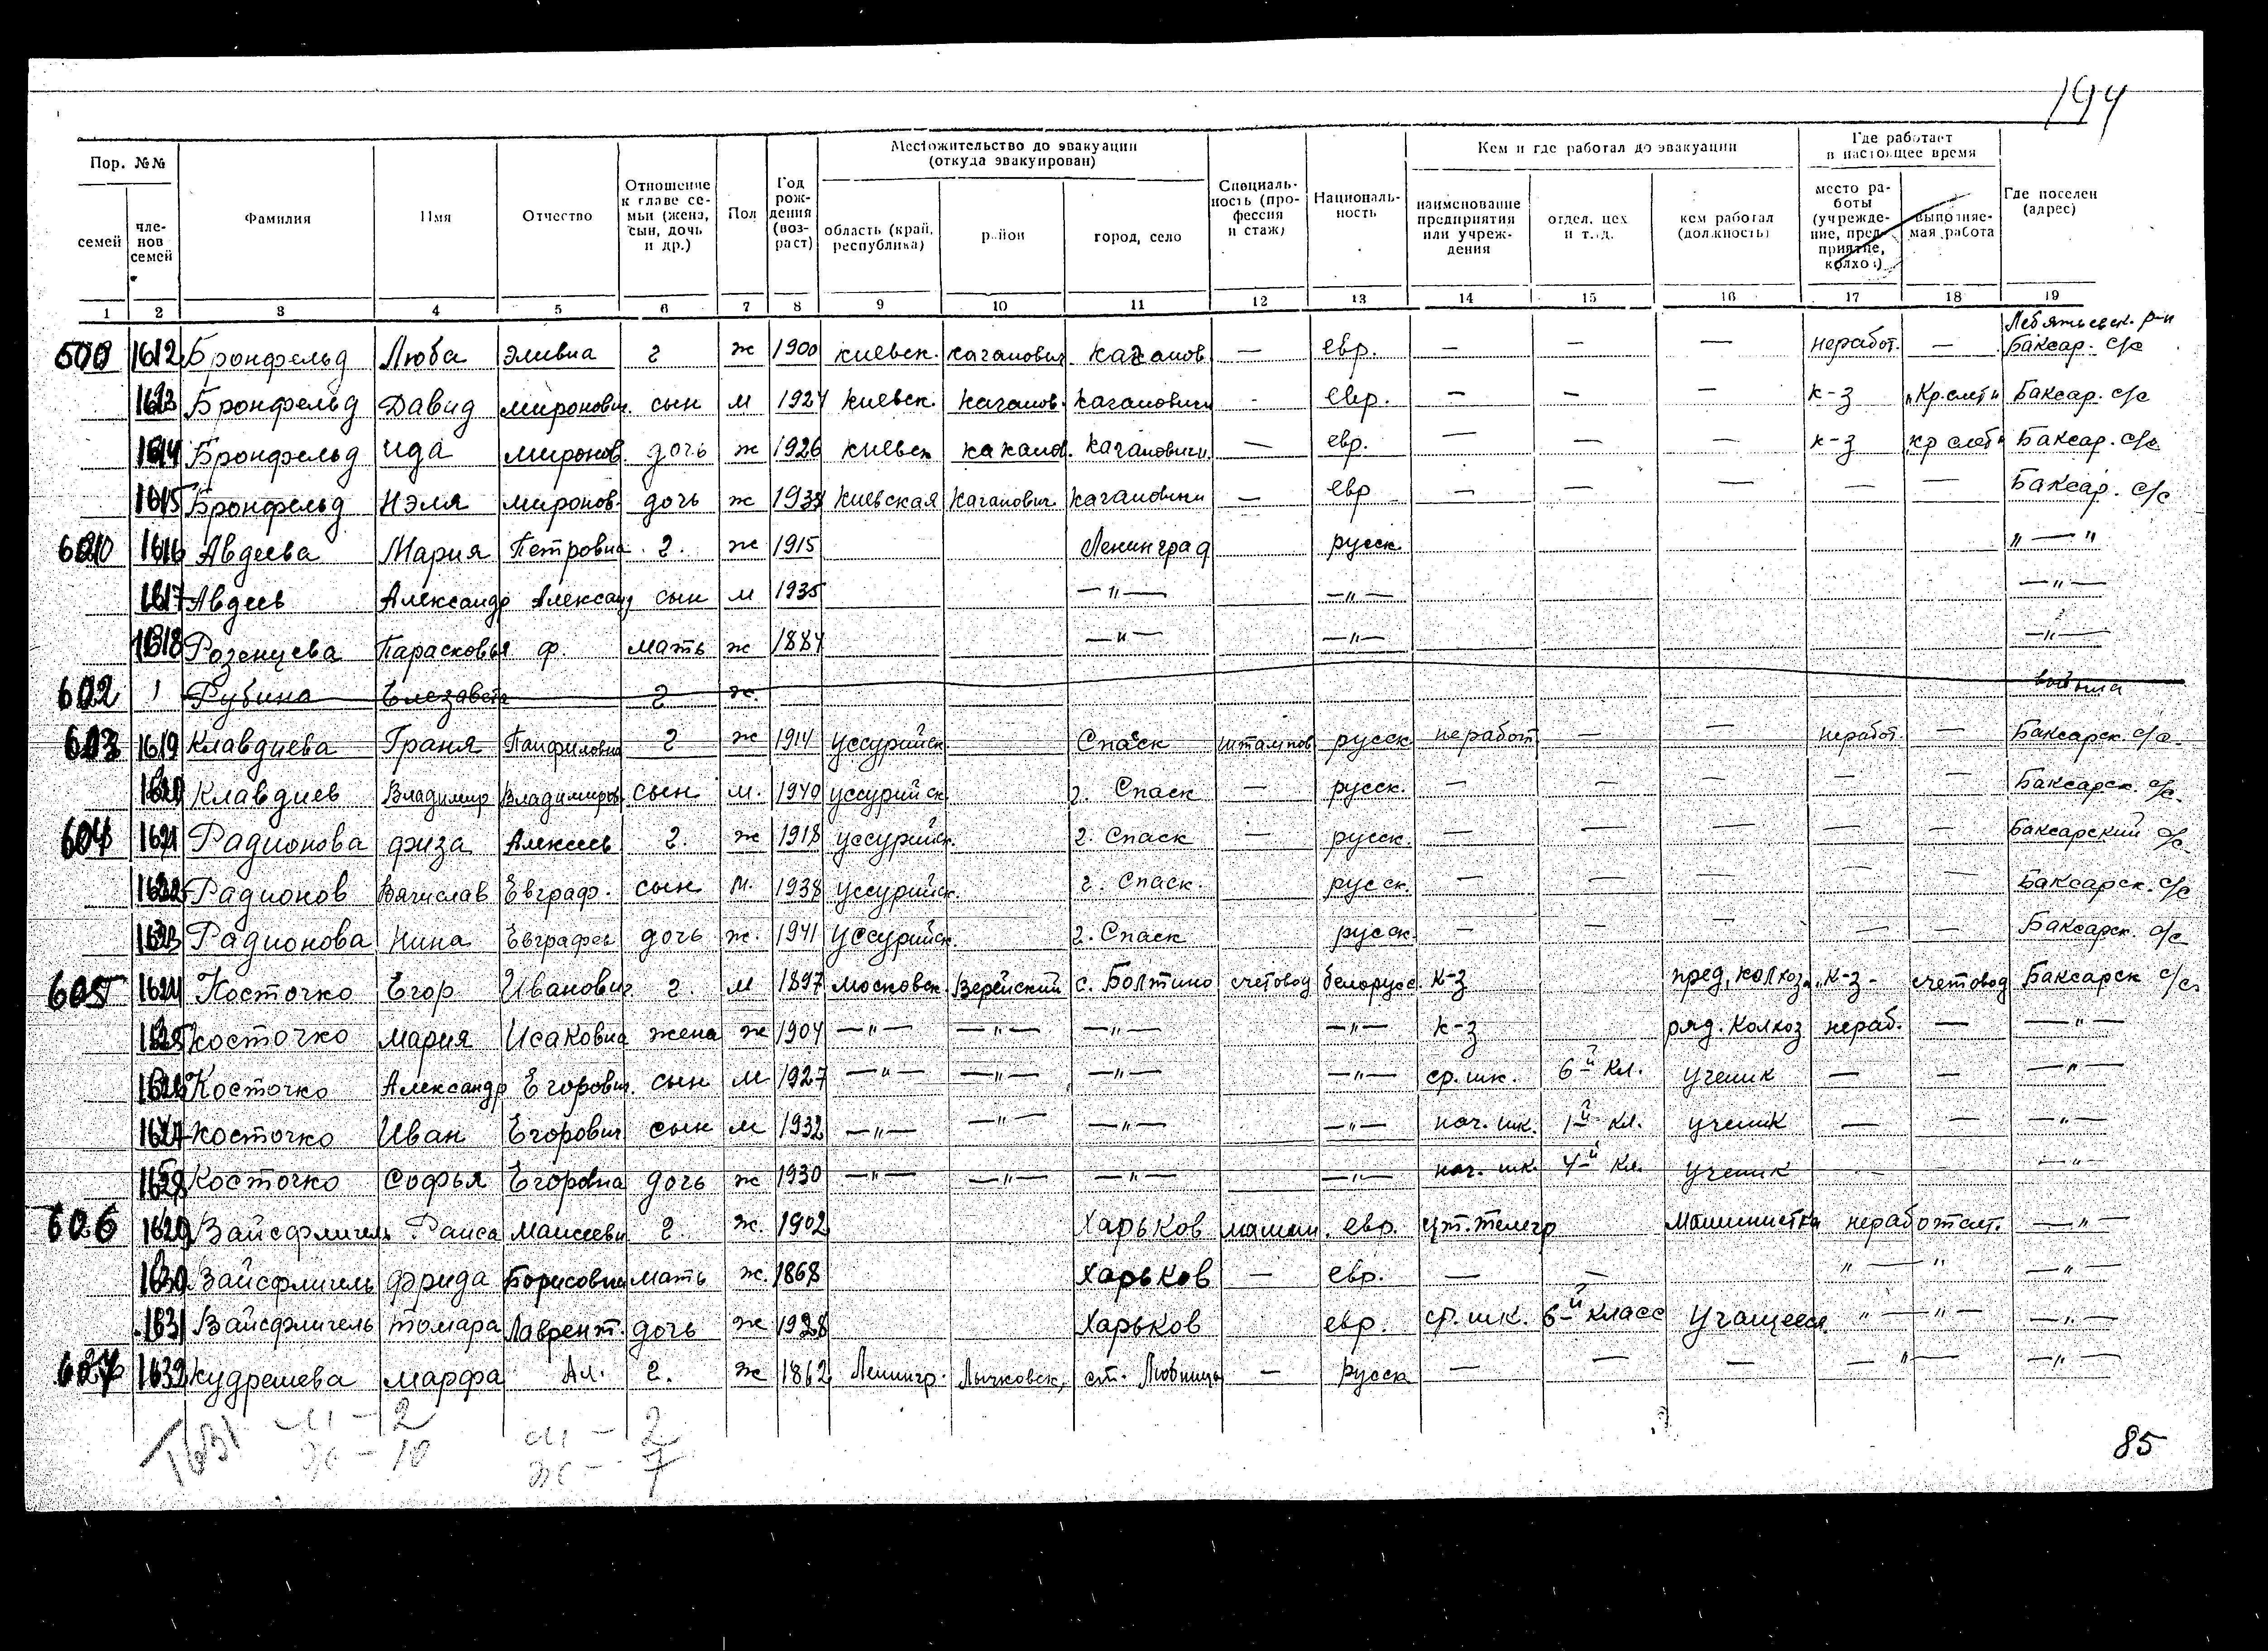 194
Пор. №№
Местожительство до эвакуации (откуда эвакуирован)
Кем и где работал до эвакуации
Где работает в настоящее время
семей
членов семей
Фамилия
Имя
Отчество
Отношение к главе семьи (жена, сын, дочь и др.)
Пол
Год рождения (возраст)
область (край, республика)
район
город, село
Специальность (профессия и стаж)
Национальность
наименование предприятия или учреждения
отдел, цех и т. д.
кем работал (должность)
место работы (учреждение, предприятие, колхоз)
выполняемая работа
Где поселен (адрес)
1 2 3 4 5 6 7 8 9 10 11 12 13 14 15 16 17 18 19
1612 Бронфельд Люба г ж 1900 киевск. каганович каганов. — евр. — — — неработ. — Лебяжьевск. р-н Баксар. с/с
1613 Бронфельд Давид миронович. сын м 1924 киевск. каганов. кагановичи - евр. — — — к-з Баксар. с/с
1614 Бронфельд ида миронов. дочь ж 1926 киевск кагановичи. — евр. — — — к-з Баксар. с/с
1615 Бронфельд Нэля миронов. дочь ж 1938 киевская каганович. кагановичи — евр — — — — — Баксар. с/с
1616 Авдеева Мария Петровна г. ж 1915 Ленинград русск. " — "
1617 Авдеев Александр Александ сын м 1935 —"— —"— —"—
1618 Розенцева Парасковья ф. мать ж 1884 —"— —"— —"—
602 Рубина Елезавета г ж. выбыла
603 1619 Клавдиева Граня Панфиловна г ж 1914 уссурийск Спасск штампов русск. неработ. — — неработ. — Баксарск. с/с.
1620 Клавдиев Владимир Владимиров. сын м. 1940 уссурийск. г. Спаск — русск. — — — — — Баксарск. с/с.
604 1621 Радионова физа Алексеев г. ж 1918 уссурийск. г. Спаск — русск. — — — — — Баксарский с/с.
1622 Радионов Вячислав Евграф. сын м. 1938 уссурийск. г. Спаск. русск. — — — — — Баксарск. с/с
1623 Радионова Нина Евграфов дочь ж. 1941 уссурийск. г. Спаск русск. — — — — — Баксарск. с/с
605 1624 Косточко Егор Иванович. г. м 1897 московск. Верейский с. Болтино счетовод белорусс. к-з пред. колхоза к-з - счетовод Баксарск с/с.
1625 Косточко Мария Исаковна жена ж 1904 —"— —"— —"— —"— к-з ряд. колхоз нераб. — —"—
1626 Косточко Александр Егорович. сын м 1927 —"— —"— —"— —"— ср. шк. 6й кл. ученик — — —"—
1627 Косточко Иван Егорович сын м 1932 —"— —"— —"— —"— нач. шк. 1й кл. ученик — — —"—
1628 Косточко Софья Егоровна дочь ж 1930 —"— —"— —"— —"— нач. шк. 4й кл. ученик —"—
606 1629 Вайсфличель Раиса Маисеевн г. ж. 1902 Харьков машин. евр. цт. телегр Машинистка неработает. —"—
1630 Вайсфличель фрида Борисовна мать ж. 1868 Харьков — евр. — — " — " —"—
1631 Вайсфличель томара Лаврент. дочь ж 1928 Харьков евр. ср. шк. 6й класс Учащееся. " — " — —"—
607 1632 Кудрешева марфа Ал. г. ж 1862 Ленингр. Лычковск. ст. Любница — русск — — — — " — —"—
1631
м - 2
ж - 10
м - 2
ж - 7
85